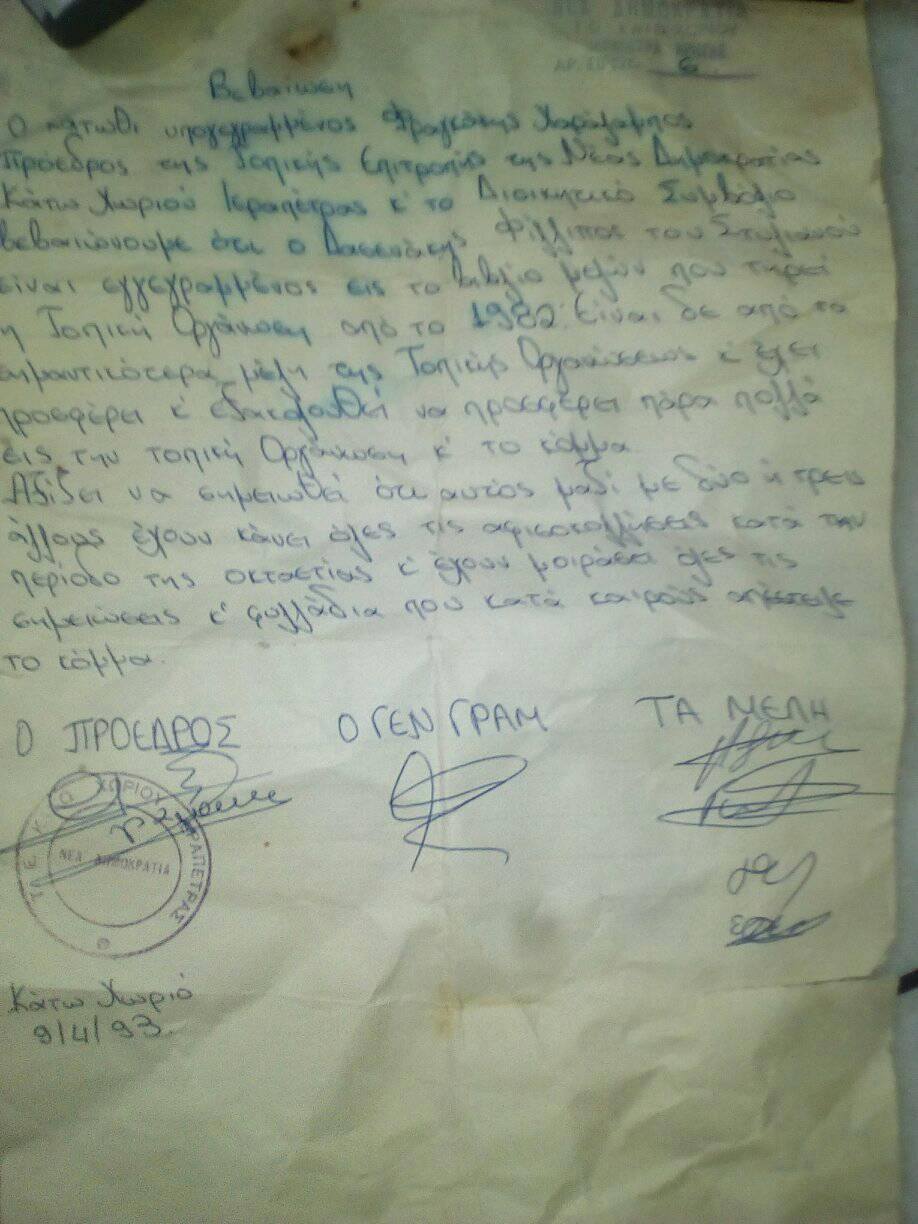 ΝΕΑ ΔΗΜΟΚΡΑΤΙΑ
ΑΡ. ΠΡΩΤ. 6
Βεβαίωση
Ο κάτωθι υπογεγραμμένος Φραγκάκης Χαράλαμπος
Πρόεδρος της Τοπικής Επιτροπής της Νέας Δημοκρατίας
Κάτω Χωριού Ιεραπέτρας κ' το Διοικητικό Συμβόλιο
βεβαιώνουμε ότι ο Δασενάκης Φίλλιπος του Στυλιανού
είναι εγγεγραμμένος εις το βιβλίο μελών που τηρεί
η Τοπική Οργάνωση από το 1982. Είναι δε από τα
σημαντικότερα μέλη της Τοπικής Οργανώσεως κ' έχει
προσφέρει κ' εξακολουθεί να προσφέρει πάρα πολλά
εις την τοπική Οργάνωση κ' το κόμμα.
Αξίζει να σημειωθεί ότι αυτός μαζί με δύο ή τρεις
άλλους έχουν κάνει όλες τις αφισοκολλήσεις κατά την
περίοδο της οκταετίας κ' έχουν μοιράσει όλες τις
σημειώσεις κ' φυλλάδια που κατά καιρούς απέστειλε
το κόμμα.
Ο ΠΡΟΕΔΡΟΣ Ο ΓΕΝ ΓΡΑΜ ΤΑ ΜΕΛΗ
Τ Ε Κ Ο ΧΩΡΙΟΥ ΙΕΡΑΠΕΤΡΑΣ
ΝΕΑ ΔΗΜΟΚΡΑΤΙΑ
Κάτω Χωριό
9/4/93